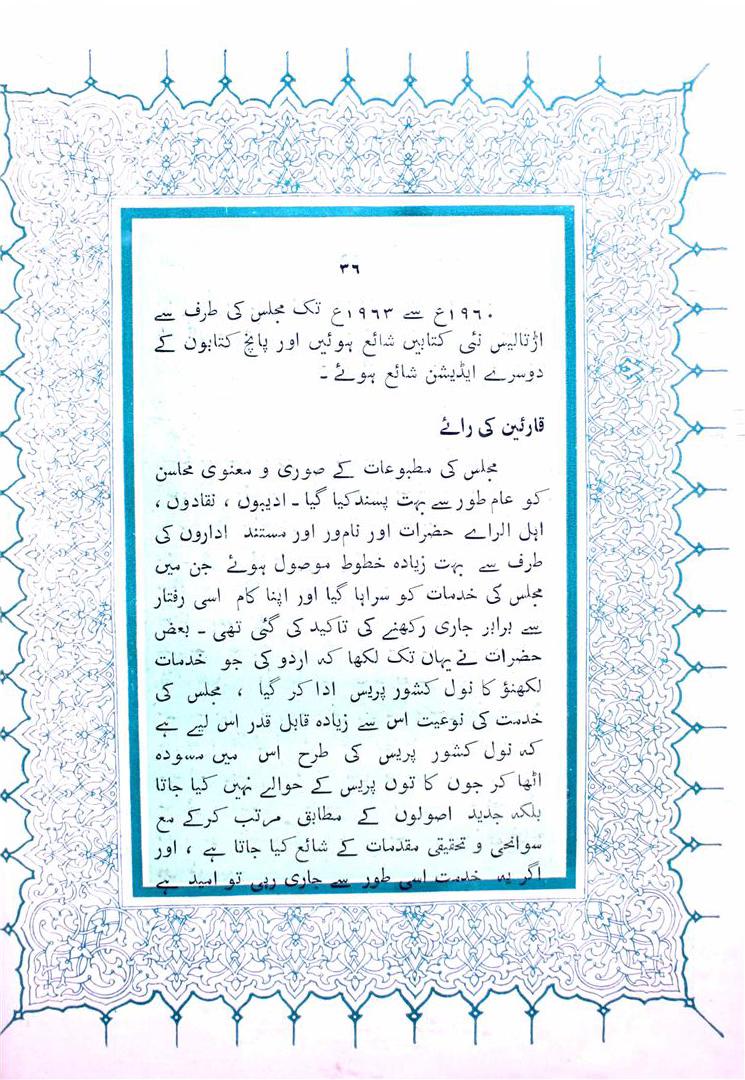 ۳۶
۱۹۶۰ع سے ۱۹۶۳ع تک مجلس کی طرف سے
اڑتالیس نئی کتابیں شائع ہوئیں اور پانچ کتابوں کے
دوسرے ایڈیشن شائع ہوئے ۔
قارئین کی رائے
مجلس کی مطبوعات کے صوری و معنوی محاسن
کو عام طور سے بہت پسند کیا گیا ۔ ادیبوں ، نقادوں ،
اہل الراے حضرات اور نامور اور مستند اداروں کی
طرف سے بہت زیادہ خطوط موصول ہوئے جن میں
مجلس کی خدمات کو سراہا گیا اور اپنا کام اسی رفتار
سے برابر جاری رکھنے کی تاکید کی گئی تھی ۔ بعض
حضرات نے یہاں تک لکھا کہ اردو کی جو خدمات
لکھنؤ کا نول کشور پریس ادا کر گیا ، مجلس کی
خدمت کی نوعیت اس سے زیادہ قابل قدر اس لیے ہے
کہ نول کشور پریس کی طرح اس میں مسودہ
اٹھا کر جوں کا توں پریس کے حوالے نہیں کیا جاتا
بلکہ جدید اصولوں کے مطابق مرتب کرکے مع
سوانحی و تحقیقی مقدمات کے شائع کیا جاتا ہے ، اور
اگر یہ خدمت اسی طور سے جاری رہی تو امید ہے